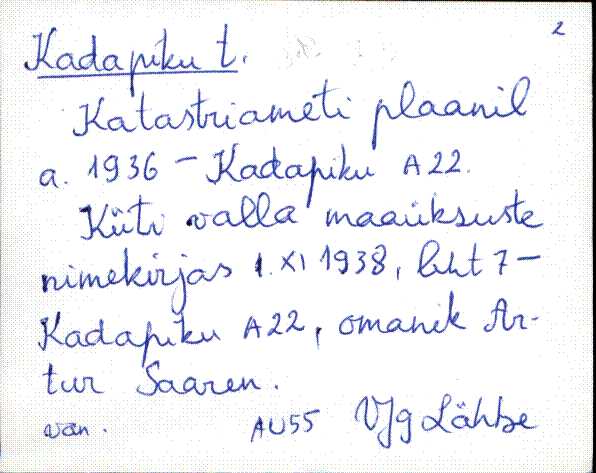 2
Kadapiku t.
Katastriameti plaanil
a. 1936 – Kadapiku A 22.
Küti valla maaüksuste
nimekirjas 1. XI 1938, leht 7 –
Kadapiku A 22, omanik Ar-
tur Saaren.
VJg Lähtse
van. AU55